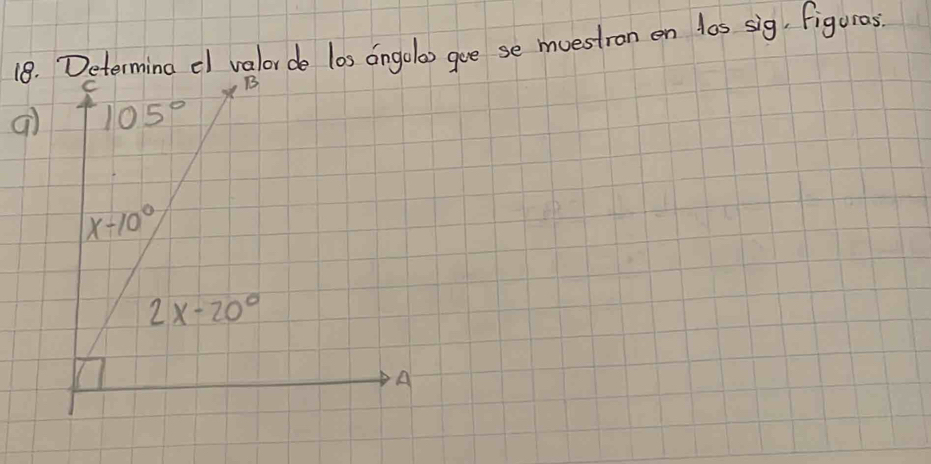 18. Determina el valor de los ángulos que se muestran en las sig. figuras.
C
B
a) 105°
x-10°
2x-20°
A